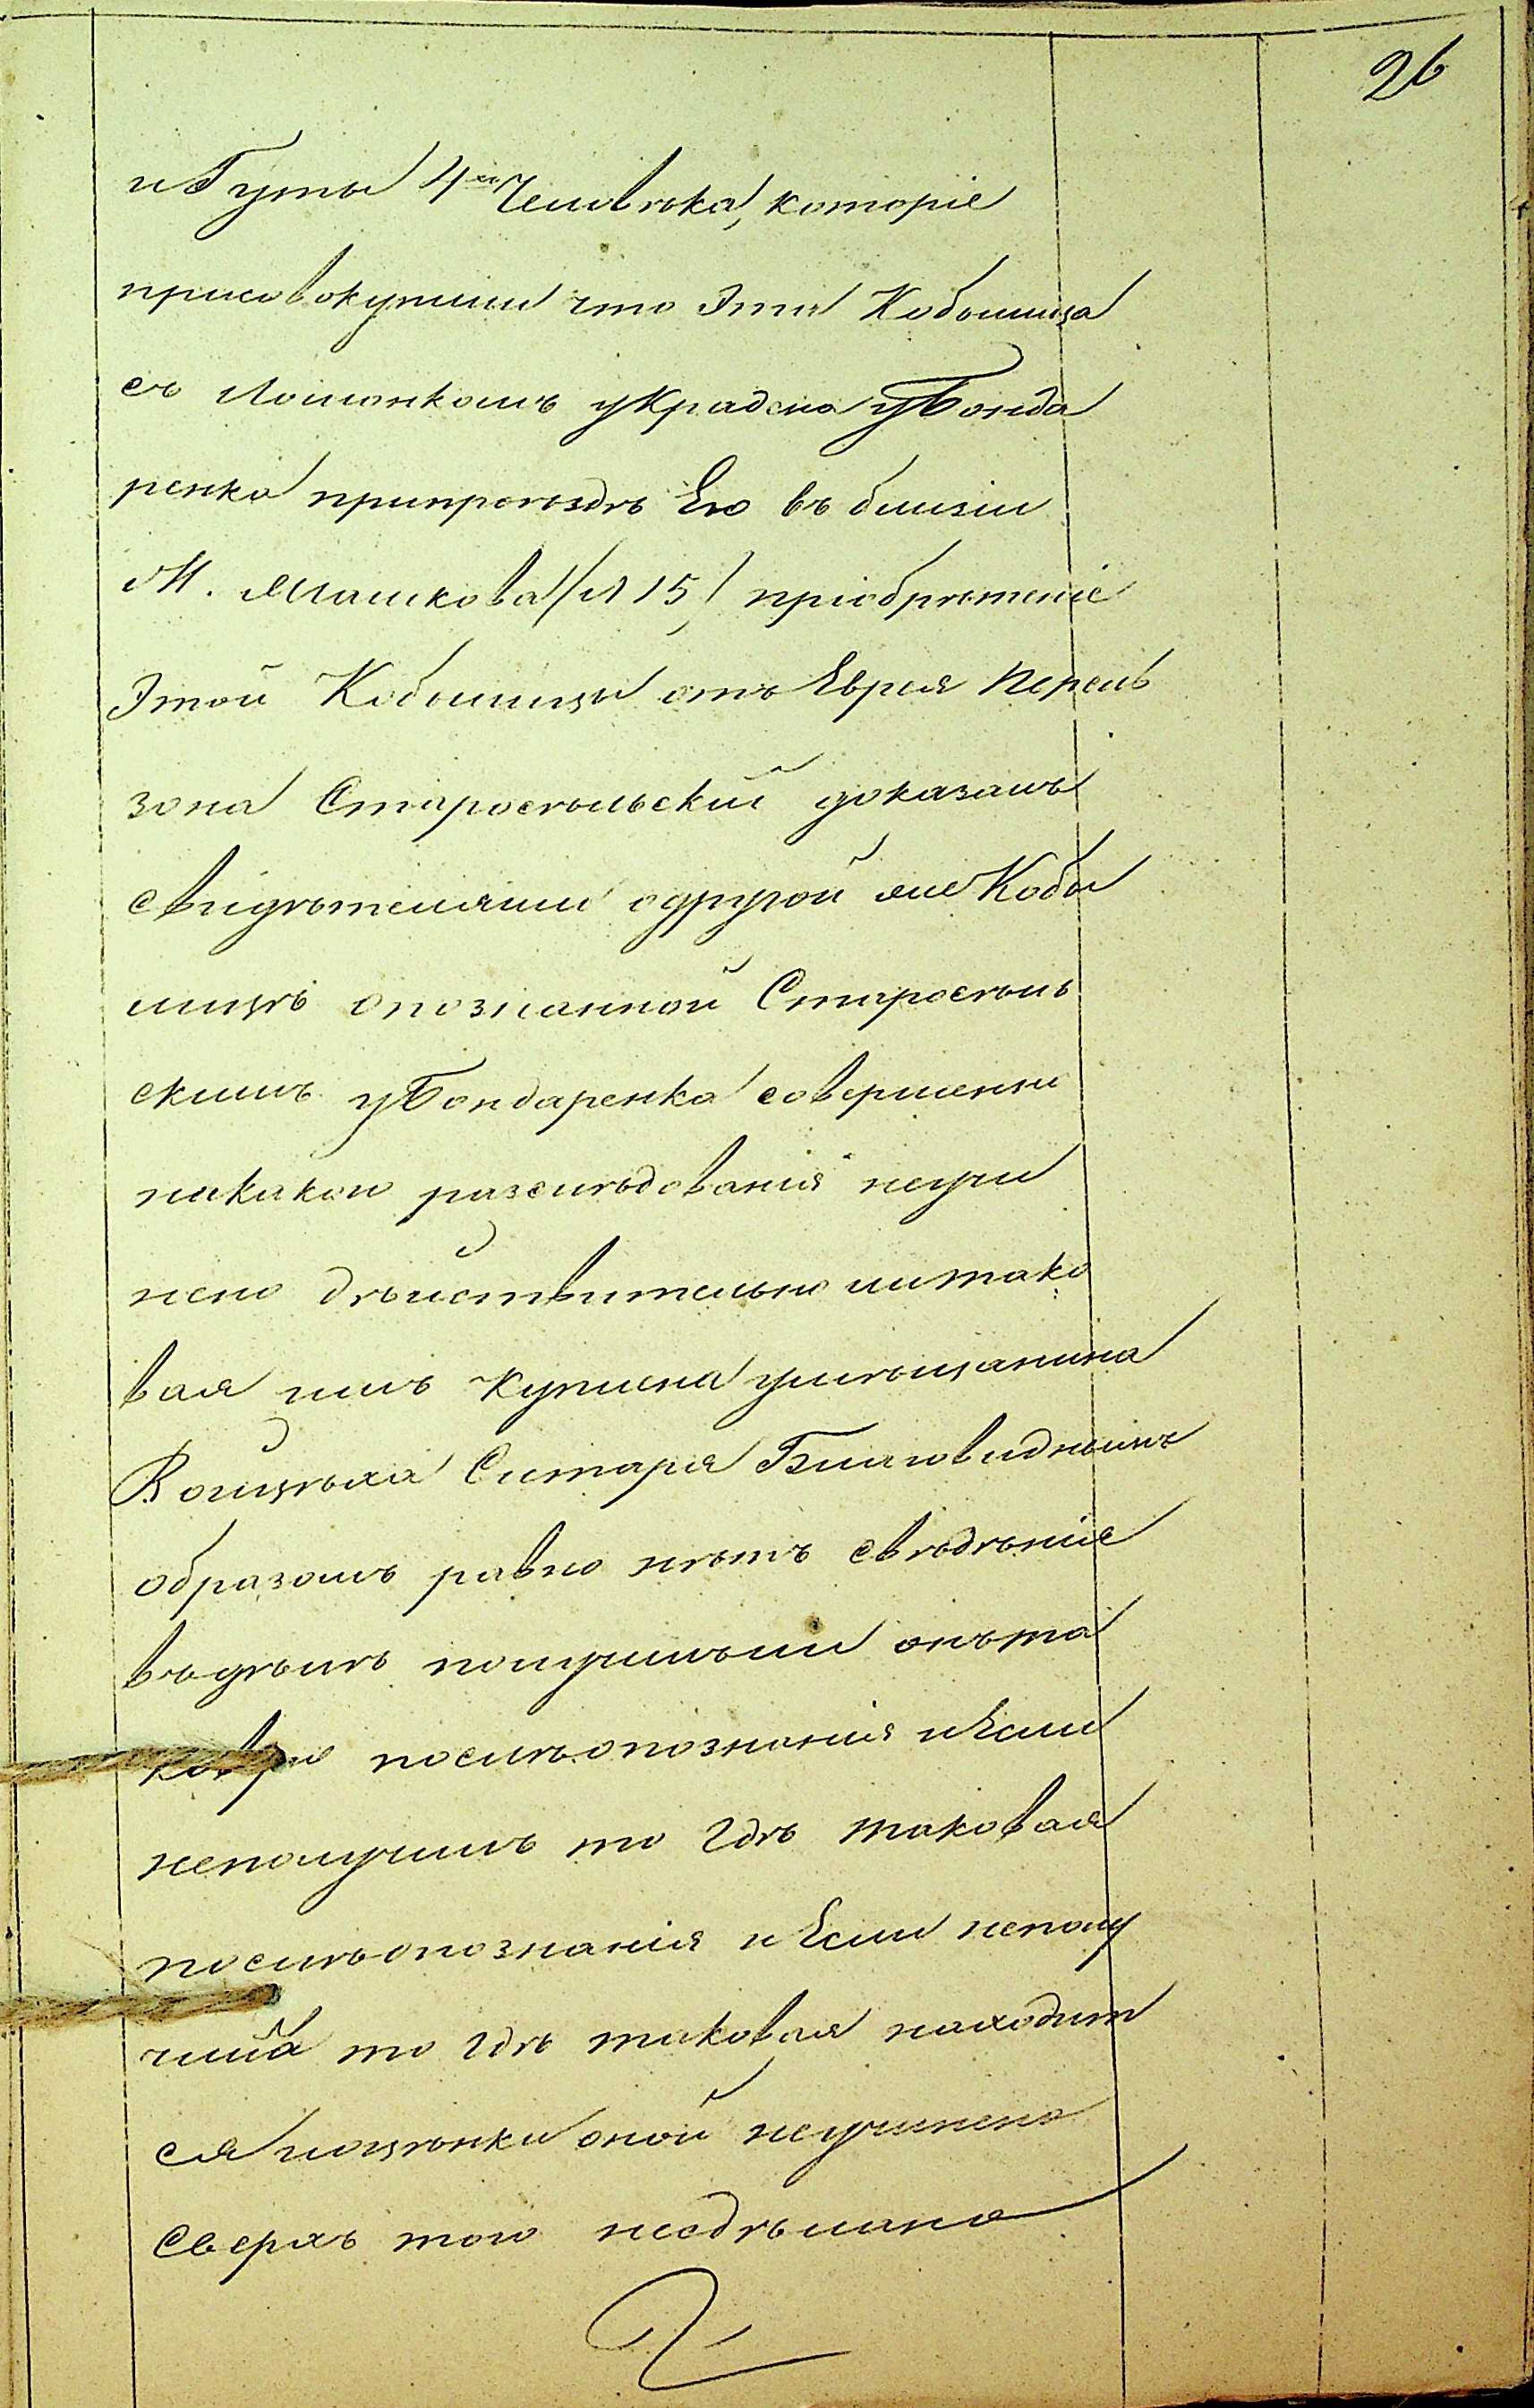 26
и Гуты 4хъ Человѣка, которіе
присовокупили что Эта Кобылица
съ Лошонкомъ украдена у Бонда
ренка припроѣздѣ Его въ близи
М. Машкова /л 15/ пріобрѣтеніе
Этой Кобылицы отъ Еврея Перель
зона Старосѣльскій доказалъ
свидѣтелями одругой же Кобы
лицѣ опознанной Старосѣль
скимъ у Бондаренка совершенно
никакого разслѣдованія неучи
нено дѣйствительно ли тако
вая имъ куплена умѣщанина
Войцѣха Ситаря Благовиднымъ
образомъ равно нѣтъ свѣдѣніе
въдѣлѣ получилъ ли онъ та
ковую послѣ опознанія и Если
неполучилъ то гдѣ таковая
послѣ опознанія и Если неполу
чила то гдѣ таковая находит
ся и оцѣнки оной неучинено
Сверхъ того несдѣлано